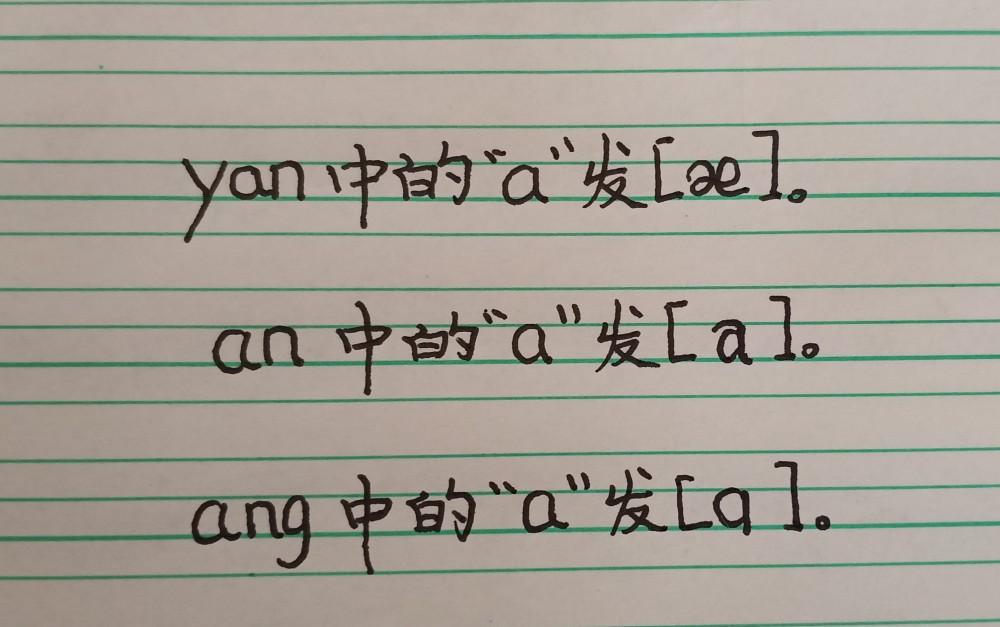 yan 中的“a”发[æ]。
an 中的“a”发[a]。
ang 中的“a”发[ɑ]。